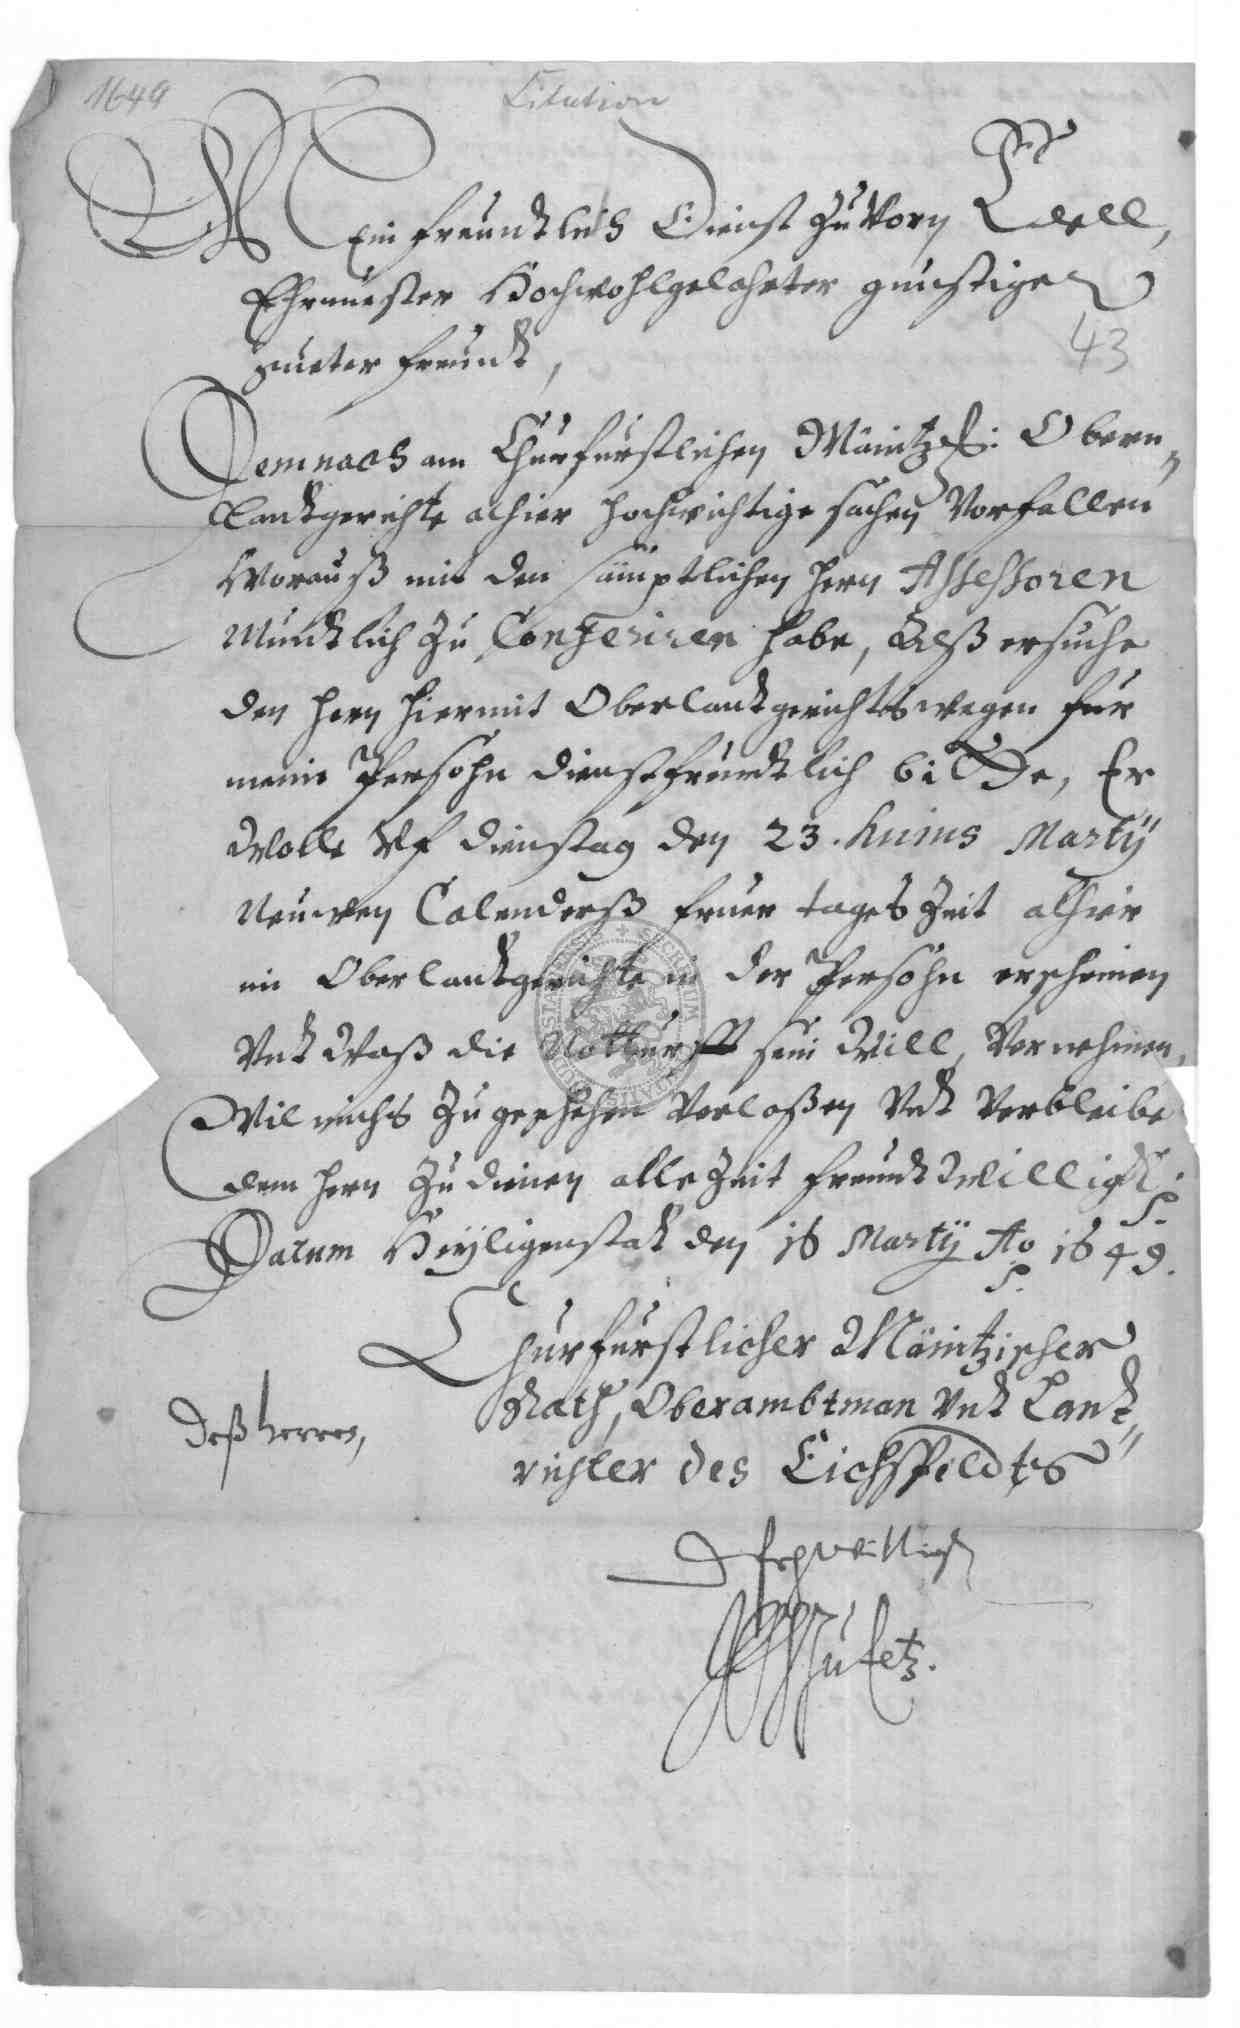 1649
Citation
Mein freundtlichs Dienst zuvorn Edell,
Ehrnuester Hochwohlgelahrter günstiger
gueter freundt,
43
Demnach am Churfürstlichen Mäintzs: Obern
landtgerichte alhier hochwichtige sachen Vorfallen
Worauß mit den sämptlichen hern Assessoren
Mundtlich zu Conferiren habe, Alß ersuche
den hern hiermit Oberlandtgerichtswegen für
meine Persohn dienstfreundtlich bittde, Er
Wolle Vf dienstag den 23. huius Martij
Neuwen Calenderß fruer tages Zeit alhier
im Oberlandtgerichte in der Persohn erscheinen
Vndt Waß die Notturfft sein Will, Vernehmen,
Wil michs zu geschehen Verlaßen Vndt Verbleibe
dem hern zu dienen alle Zeit freundtwillig
Datum Heyligenstadt den 16 Martij Ao 1649.
Churfürstlicher Mäintzischer
Rath, Oberambtman Vndt Landt
richter des Eichsfeldts
Deß herren,